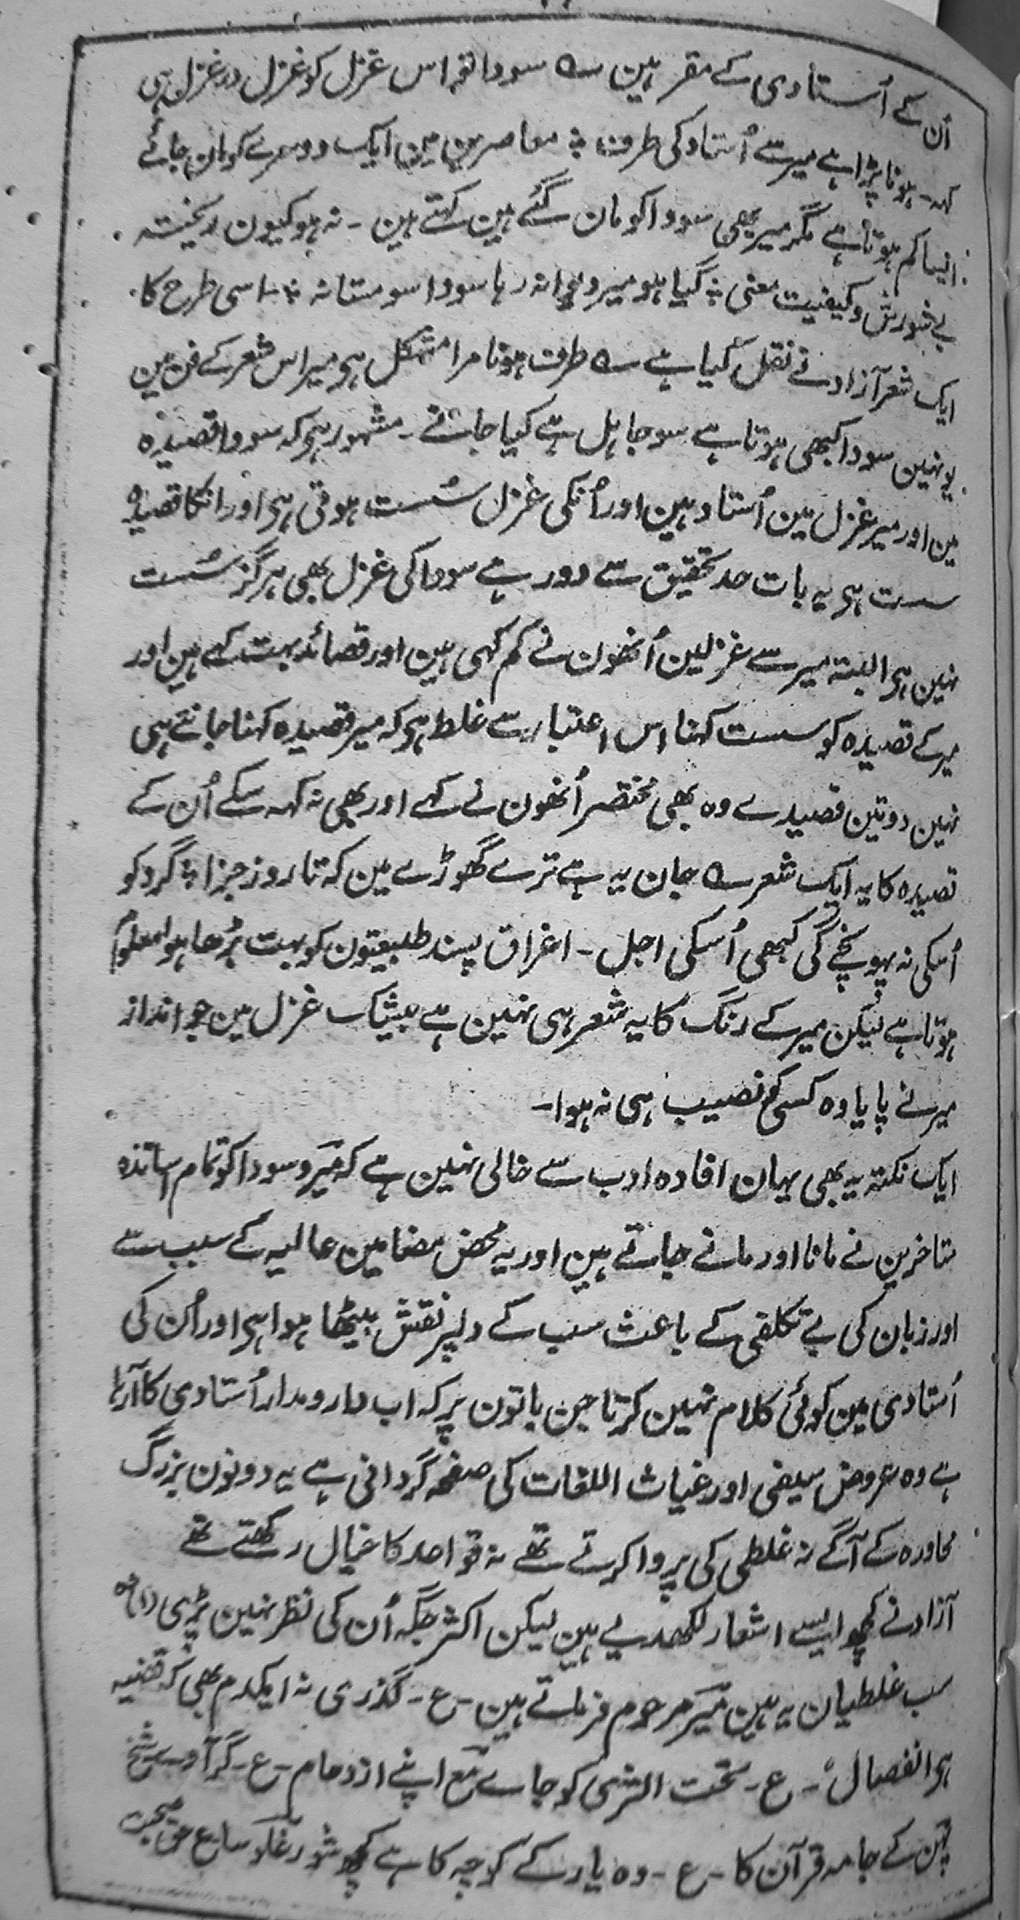 اُن کے اُستادی کے مقر ہین ؎ سودا تو اس غزل کو غزل در غزل ہی
کہہ۔ ہونا پڑا ہے میر سے اُستاد کی طرف ؞ معاصرین مین ایک دوسرے کو مان جائے
ایسا کم ہوتا ہے مگر میر بھی سودا کو مان گئے ہین کہتے ہین۔ نہ ہو کیون ریختہ
بے شورش و کیفیت معنی ؞ گیا ہو میر دیوانہ رہا سودا سو مستانہ ؞ اسی طرح کا
ایک شعر آزاد نے نقل کیا ہے ؎ طرف ہونا مرا مشکل ہی میر اس شعر کے فن مین
یونہین سودا کبھی ہوتا ہے سو جاہل ہے کیا جانے۔ مشہور ہی کہ سودا قصیدہ
مین اور میر غزل مین اُستاد ہین اور اُنکی غزل سُست ہوتی ہی اور انکا قصیدہ
سست ہی یہ بات حد تحقیق سے دور ہے سودا کی غزل بھی ہرگز سُست
نہین ہی البتہ میر سے غزلین اُنھون نے کم کہی ہین اور قصائد بہت کہے ہین اور
میر کے قصیدہ کو سست کہنا اس اعتبار سے غلط ہو کہ میر قصیدہ کہنا جانتے ہی
نہین دو تین قصیدے وہ بھی مختصر اُنھون نے کہے اور بھی نہ کہہ سکے اُن کے
قصیدہ کا یہ ایک شعر ؎ جان یہ ہے ترے گھوڑے مین کہ تا روز جزا ؞ گرد کو
اُسکی نہ پہونچے گی کبھی اُسکی اجل۔ اغراق پسند طبیعتون کو بہت بڑھا ہوا معلوم
ہوتا ہے لیکن میر کے رنگ کا یہ شعر ہی نہین ہے بیشک غزل مین جو انداز
میر نے پایا وہ کسی کو نصیب ہی نہ ہوا۔
ایک نکتہ یہ بھی یہان افادہ ادب سے خالی نہین ہے کہ میر و سودا کو تمام اساتذہ
متاخرین نے مانا اور مانے جاتے ہین اور یہ محض مضامین عالیہ کے سبب سے
اور زبان کی بے تکلفی کے باعث سب کے دلپر نقش بیٹھا ہوا ہی اور اُن کی
اُستادی مین کوئی کلام نہین کرتا جن باتون پر کہ اب دار و مدار اُستادی کا آرہا
ہے وہ عروض سیفی اور غیاث اللغات کی صفحہ گردانی ہے یہ دونون بزرگ
محاورہ کے آگے نہ غلطی کی پروا کرتے تھے نہ قواعد کا خیال رکھتے تھے
آزاد نے کچھ ایسے اشعار لکھدیے ہین لیکن اکثر جگہ اُن کی نظر نہین پڑی (۱) وہ
سب غلطیان یہ ہین میر مرحوم فرماتے ہین۔ ع۔ گذری نہ ایکدم بھی کہ قضیہ
ہو انفصال۔ ع۔ تحت الثری کو جاے مع اپنے ازدحام۔ ع۔ گر آوے شیخ
پہن کے جامہ قرآن کا۔ ع۔ وہ یار کے کوچہ کا ہے کچھ شور غلو سا ع